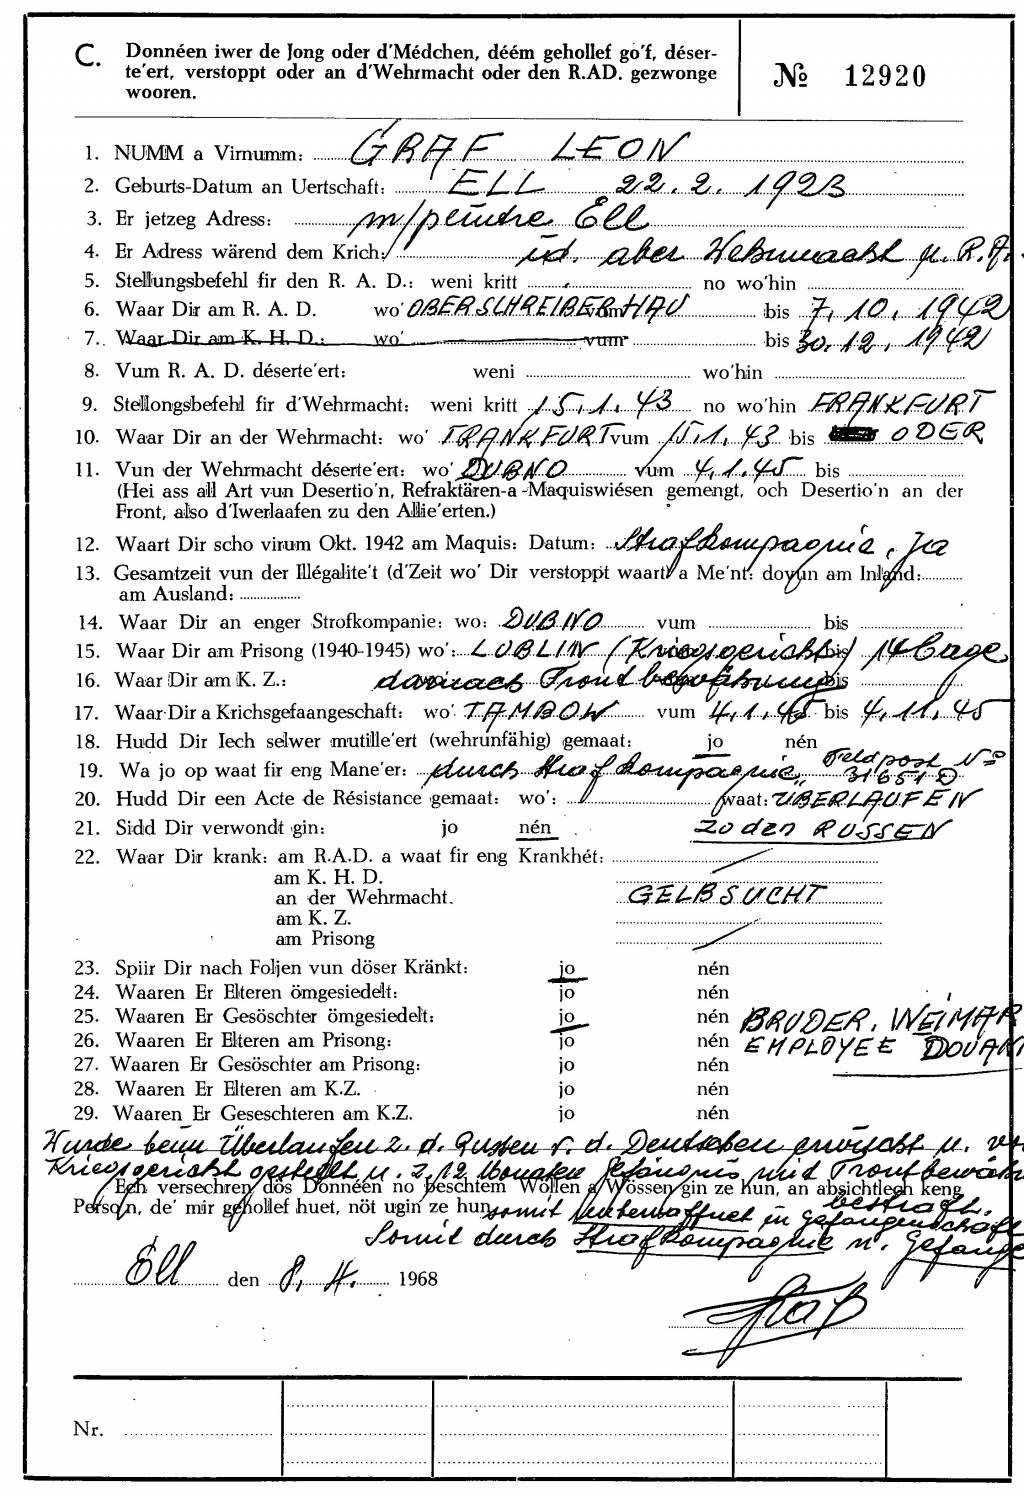 C. Donnéen iwer de Jong oder d'Médchen, déém gehollef go'f, déser-
te'ert, verstoppt oder an d'Wehrmacht oder den R.AD. gezwonge
wooren.
№ 12920
1. NUMM a Virnumm: GRAF LEON
2. Geburts-Datum an Uertschaft: ELL 22.2.1923
3. Er jetzeg Adress: m/peintre Ell
4. Er Adress wärend dem Krich: id. aber Wehrmacht u. R.A.
5. Stellungsbefehl fir den R. A. D.: weni kritt no wo'hin
6. Waar Dir am R. A. D. wo' OBERSCHREIBERHAU vum bis 7.10.1942
7. Waar Dir am K. H. D.: wo' vum bis 30.12.1942
8. Vum R. A. D. déserte'ert: weni wo'hin
9. Stellongsbefehl fir d'Wehrmacht: weni kritt 15.1.43 no wo'hin FRANKFURT
10. Waar Dir an der Wehrmacht: wo' FRANKFURT vum 15.1.43 bis ODER
11. Vun der Wehrmacht déserte'ert: wo' DUBNO vum 4.1.45 bis
(Hei ass all Art vun Desertio'n, Refraktären-a-Maquiswiésen gemengt, och Desertio'n an der
Front, also d'Iwerlaafen zu den Allie'erten.)
12. Waart Dir scho virum Okt. 1942 am Maquis: Datum: Strafkompagnie, Ja
13. Gesamtzeit vun der Illégalite't (d'Zeit wo' Dir verstoppt waart) a Me'nt: dovun am Inland:
am Ausland:
14. Waar Dir an enger Strofkompanie: wo: DUBNO vum bis
15. Waar Dir am Prisong (1940-1945) wo': LUBLIN (Kriegsgericht) bis 14 Tage
16. Waar Dir am K. Z.: darnach Frontbewährung bis
17. Waar Dir a Krichsgefaangeschaft: wo' TAMBOW vum 4.1.45 bis 4.11.45
18. Hudd Dir Iech selwer mutille'ert (wehrunfähig) gemaat: jo nén
19. Wa jo op waat fir eng Mane'er: durch Strafkompagnie Feldpost No
31651 D
20. Hudd Dir een Acte de Résistance gemaat: wo': waat: ÜBERLAUFEN
21. Sidd Dir verwondt gin: jo nén zo den RUSSEN
22. Waar Dir krank: am R.A.D. a waat fir eng Krankhét:
am K. H. D.
an der Wehrmacht. GELBSUCHT
am K. Z.
am Prisong
23. Spiir Dir nach Foljen vun döser Kränkt: jo nén
24. Waaren Er Elteren ömgesiedelt: jo nén
25. Waaren Er Gesöschter ömgesiedelt: jo nén BRUDER. WEIMAR
26. Waaren Er Elteren am Prisong: jo nén EMPLOYEE DOUAN
27. Waaren Er Gesöschter am Prisong: jo nén
28. Waaren Er Elteren am K.Z. jo nén
29. Waaren Er Geseschteren am K.Z. jo nén
Wurde beim Überlaufen z. d. Russen v. d. Deutschen erwischt u. vo
Kriegsgericht gestellt u. z. 12 Monaten Gefängnis und Frontbewähr
Ech versechren dös Donnéen no beschtem Wöllen a Wössen gin ze hun, an absichtlech keng
bestraft.
Perso'n, de' mir gehollef huet, nöt ugin ze hun. somit unbewaffnet in Gefangenschaft
Somit durch Strafkompagnie u. Gefange
Ell den 8.4. 1968
Graf
Nr.